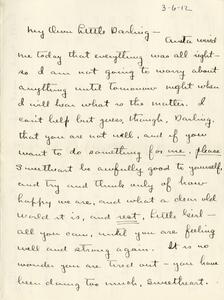 3-6-12
My Own Little Darling-
me today that everything was all right-
so I am not going to worry about
anything until tomorrow night when
I will hear what is the matter. I
can't help but guess, though, Darling,
that you are not well, and if you
want to do something for me, please
Sweetheart be awfully good to yourself,
and try and think only of how
happy we are, and what a dear old
world it is, and rest, Little Girl-
all you can, until you are feeling
well and strong again. It is no
wonder you are tired out- you have
been doing too much, Sweetheart.